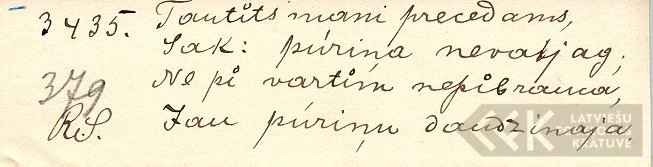 3435. Tautīts mani precedams,
Sak: pūriņa nevajag;
379 Ne pi vartim nepibrauca,
R.S. Jau pūriņu daudzinaja.
LATVIEŠU
FOLKLORAS
KRĀTUVE